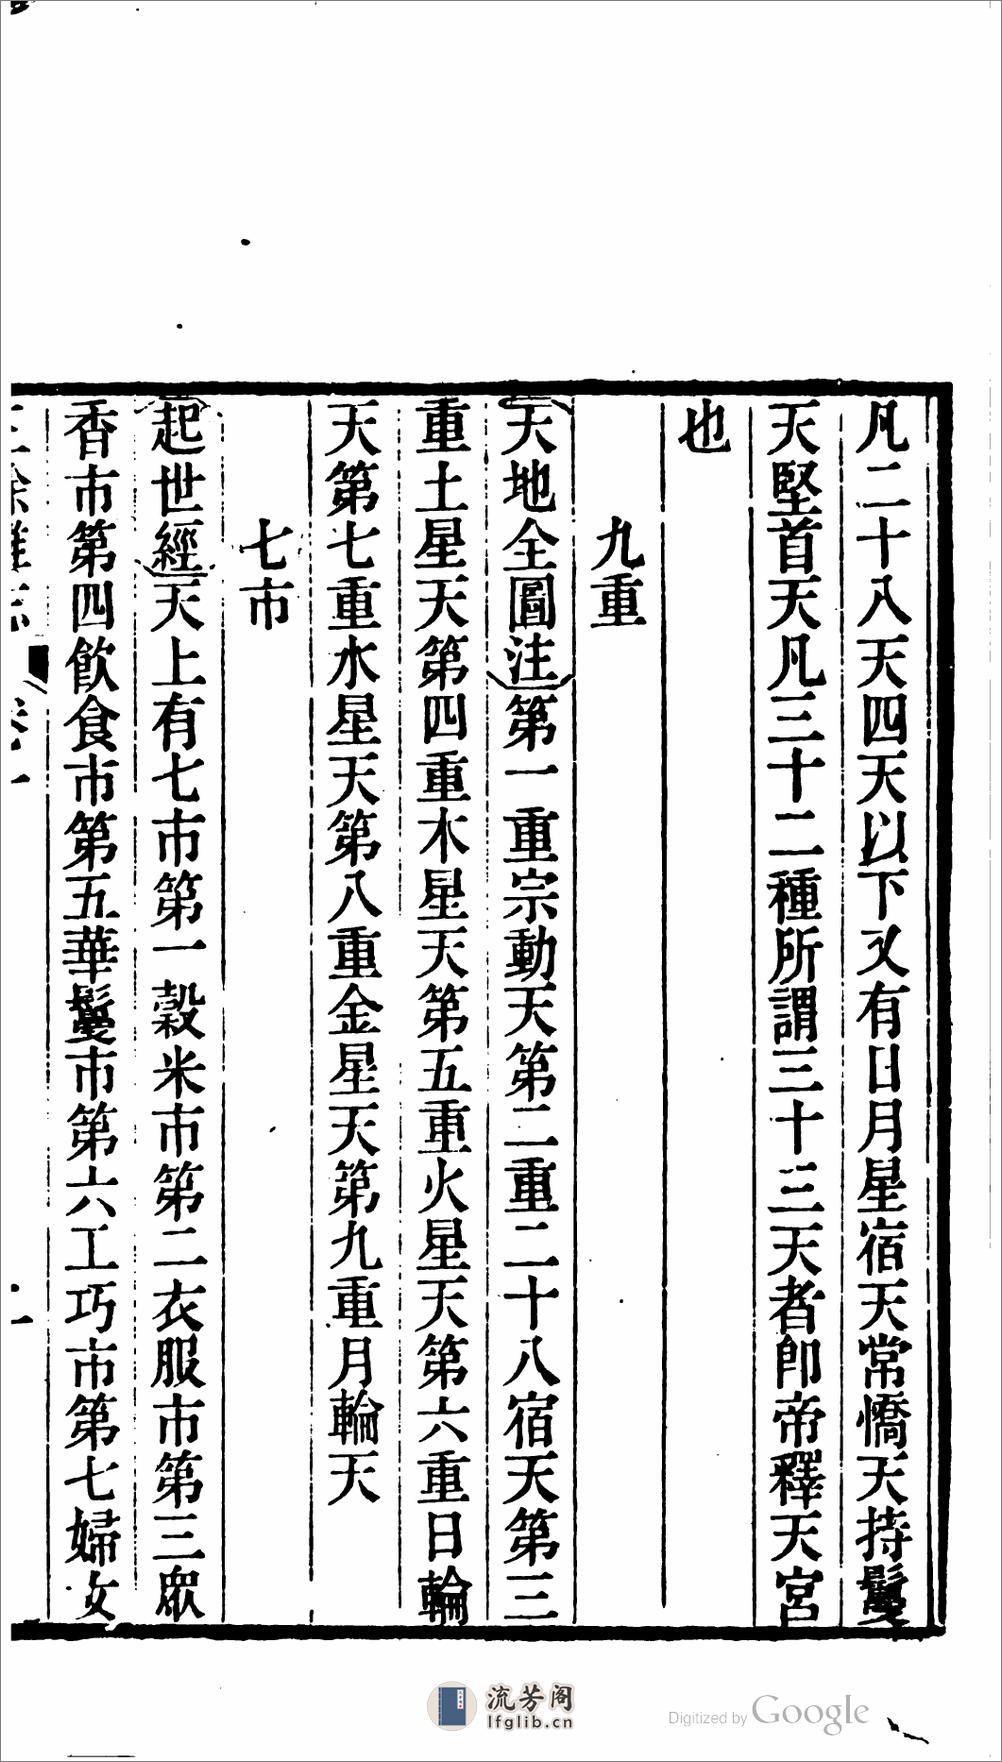 凡二十八天四天以下又有日月星宿天常憍天持鬘
天堅首天凡三十二種所謂三十三天者卽帝釋天宮
也
九重
天地全圖注第一重宗動天第二重二十八宿天第三
重土星天第四重木星天第五重火星天第六重日輪
天第七重水星天第八重金星天第九重月輪天
七市
起世經天上有七市第一穀米市第二衣服市第三眾
香市第四飲食市第五華鬘市第六工巧市第七婦女
流芳阁
lfglib.cn
Digitized by Google